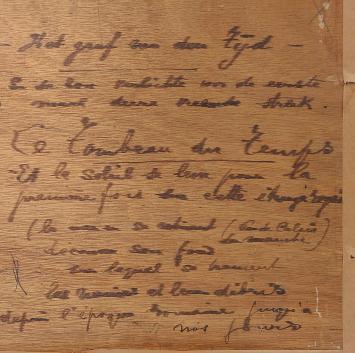 - Het graf van den Tijd -
En de zon verlichtte voor de eerste
maal deze vreemde streek.
Le Tombeau du Temps
Et le soleil se leva pour la
première fois sur cette étrange
(la mer en se retirant
découvre son fond
sur lequel se trouvent
les ruines et leurs débris
depuis l'époque romaine jusqu'à
nos jours